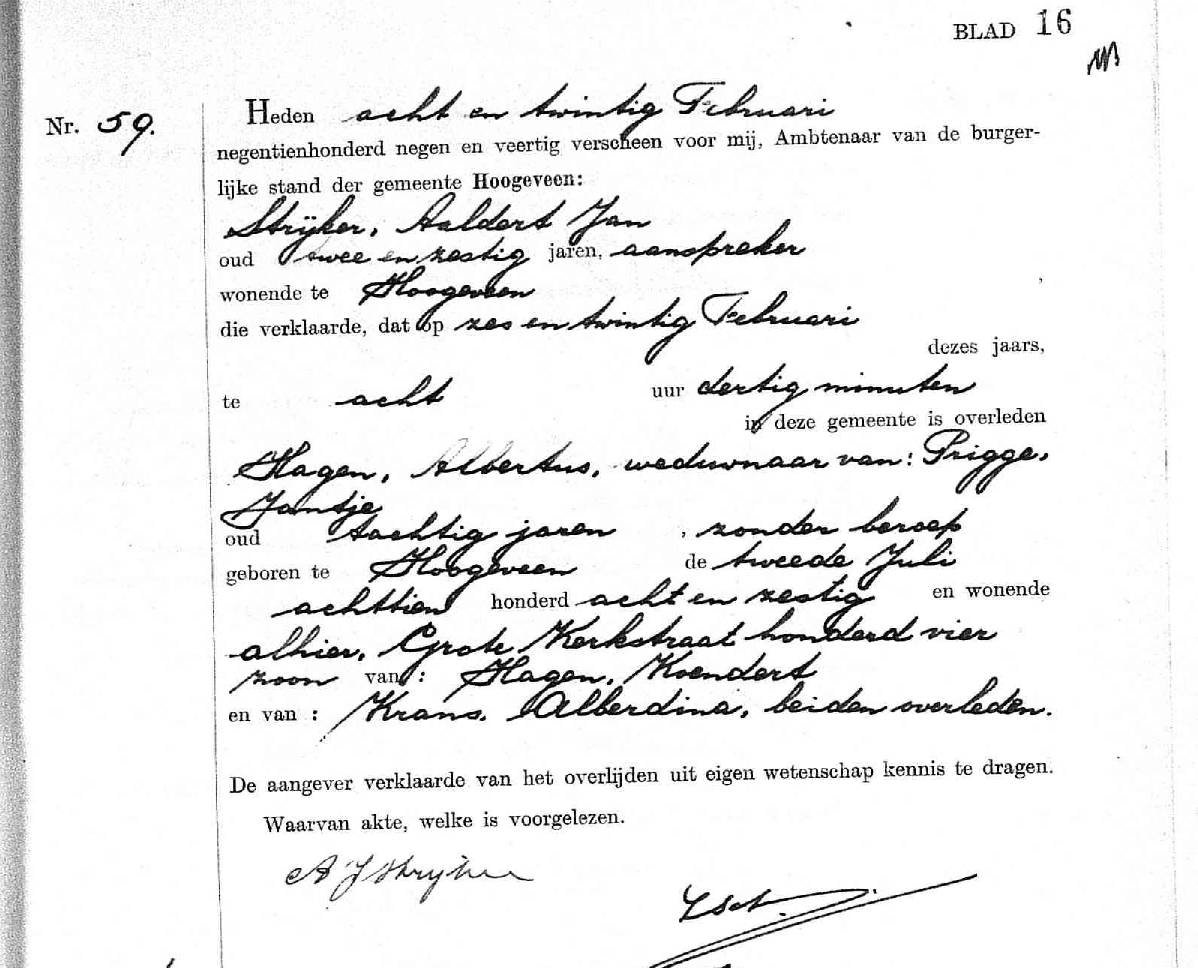 BLAD 16
Nr. 59.
Heden acht en twintig Februari
negentienhonderd negen en veertig verscheen voor mij, Ambtenaar van de burger-
lijke stand der gemeente Hoogeveen:
Strijker, Aaldert Jan
oud twee en zestig jaren, aanspreker
wonende te Hoogeveen
die verklaarde, dat op zes en twintig Februari
dezes jaars,
te acht uur dertig minuten
in deze gemeente is overleden
Hagen, Albertus, weduwnaar van: Prigge,
Jantje
oud tachtig jaren , zonder beroep
geboren te Hoogeveen de tweede Juli
achttien honderd acht en zestig en wonende
alhier, Grote Kerkstraat honderd vier
zoon van : Hagen, Koendert
en van : Krans, Alberdina, beiden overleden.
De aangever verklaarde van het overlijden uit eigen wetenschap kennis te dragen.
Waarvan akte, welke is voorgelezen.
A J Strijker